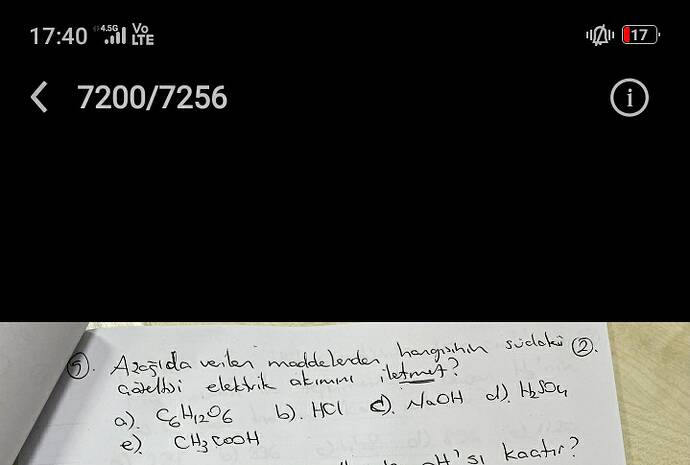 17:40 4.5G Vo LTE 17
7200/7256
9). Aşağıda verilen maddelerden hangisinin sudaki ②.
çözeltisi elektrik akımını iletmez?
a). C6H12O6 b). HCl c). NaOH d). H2SO4
e). CH3COOH
H'sı kaçtır?